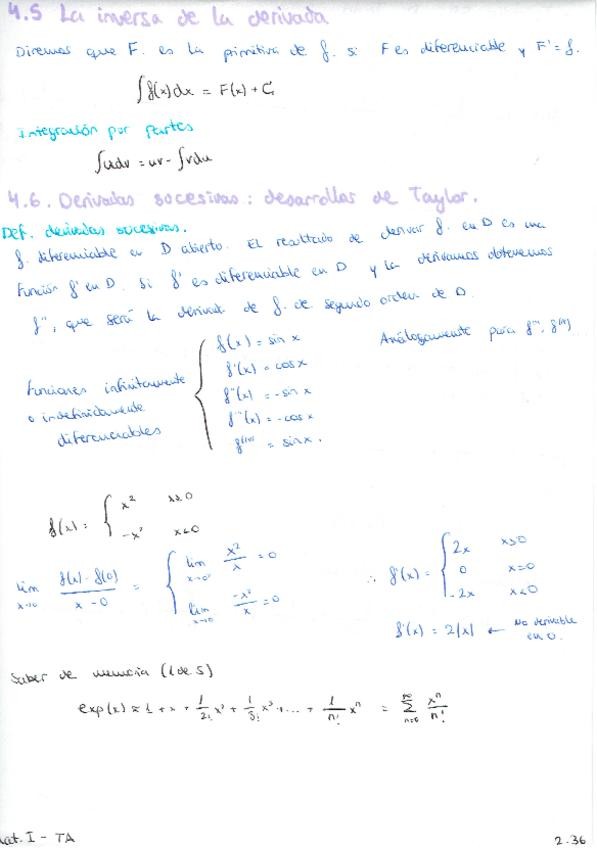 4.5 La inversa de la derivada
Diremos que F. es la primitiva de f. si F es diferenciable y F' = f.
∫f(x)dx = F(x) + C
Integración por partes
∫udv = uv - ∫vdu
4.6. Derivadas sucesivas: desarrollos de Taylor.
Def. derivadas sucesivas.
f. diferenciable en D abierto. El resultado de derivar f. en D es una
función f' en D. Si f' es diferenciable en D y la derivamos obtenemos
f'', que será la derivada de f. de segundo orden de D.
f(x) = sin x
Análogamente para f''', f(n)
f'(x) = cos x
Funciones infinitamente
f''(x) = -sin x
o indefinidamente
f'''(x) = -cos x
diferenciables
f(IV) = sin x.
f(x) = { x² x≥0
-x² x<0
lim x→0 f(x) - f(0) / x - 0 = { lim x→0⁺ x²/x = 0
lim x→0⁻ -x²/x = 0
∴ f'(x) = { 2x x>0
0 x=0
-2x x<0
f'(x) = 2|x| ← No derivable
en 0.
Saber de memoria (1 de 5)
exp(x) ≈ 1 + x + 1/2! x² + 1/3! x³ + ... + 1/n! xⁿ = ∑ n=0 ∞ xⁿ/n!
Mat. I - TA
2.36